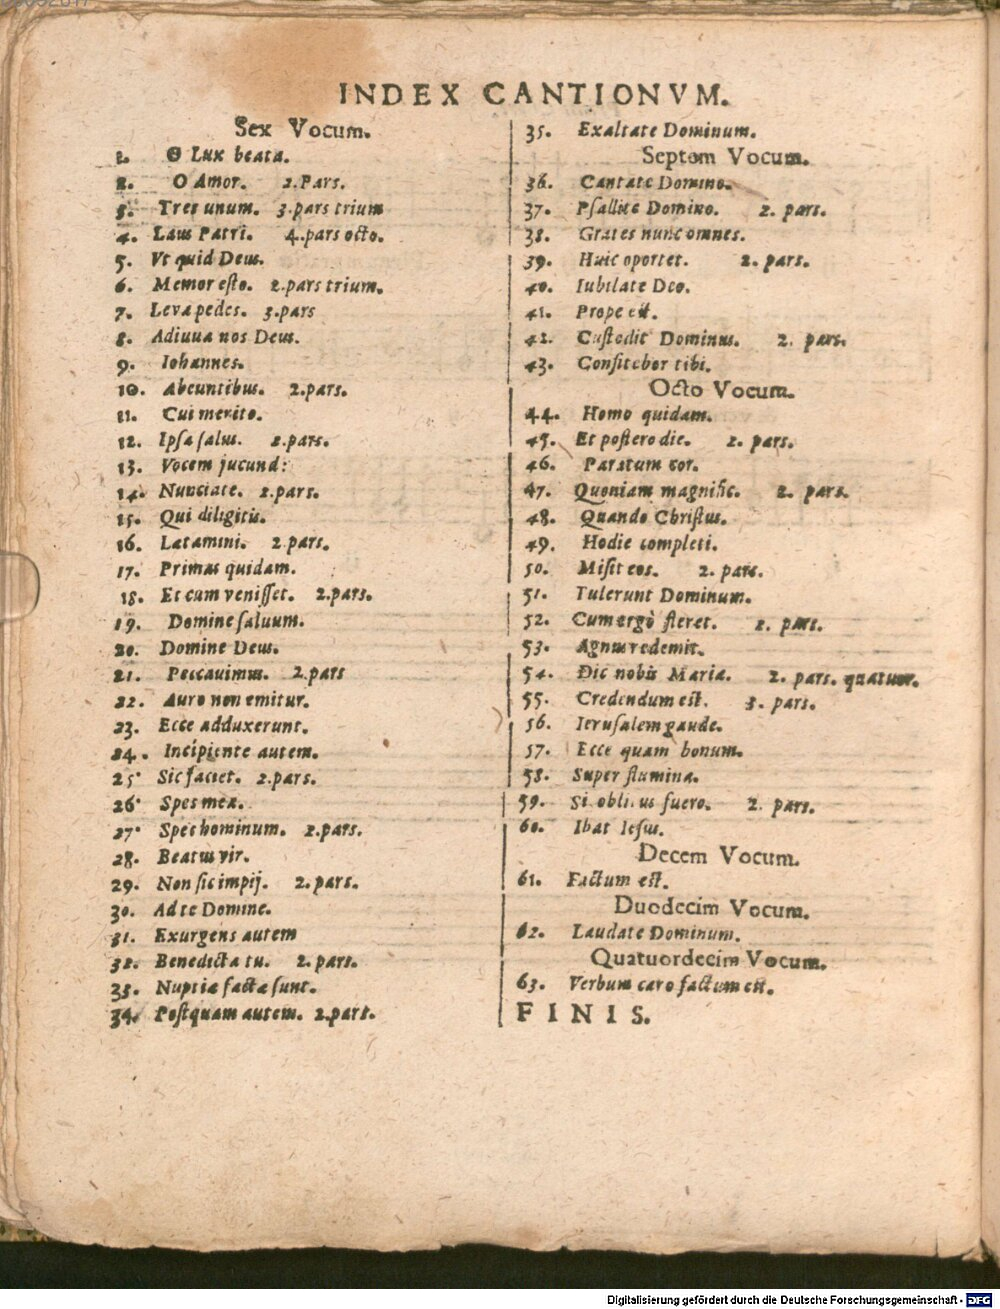 INDEX CANTIONVM.
Sex Vocum.
1. O Lux beata.
2. O Amor. 2.Pars.
3. Tres unum. 3.pars trium
4. Laus Patri. 4.pars octo.
5. Vt quid Deus.
6. Memor esto. 2.pars trium.
7. Leva pedes. 3.pars
8. Adiuua nos Deus.
9. Iohannes.
10. Abeuntibus. 2.pars.
11. Cui merito.
12. Ipsa salus. 2.pars.
13. Vocem jucund:
14. Nunciate. 2.pars.
15. Qui diligitis.
16. Lætamini. 2.pars.
17. Primas quidam.
18. Et cum venisset. 2.pars.
19. Domine saluum.
20. Domine Deus.
21. Peccauimus. 2.pars
22. Auro non emitur.
23. Ecce adduxerunt.
24. Incipiente autem.
25. Sic faciet. 2.pars.
26. Spes mea.
27. Spes hominum. 2.pars.
28. Beatus vir.
29. Non sic impij. 2.pars.
30. Ad te Domine.
31. Exurgens autem
32. Benedicta tu. 2.pars.
33. Nuptiæ factæ sunt.
34. Postquam autem. 2.pars.
35. Exaltate Dominum.
Septem Vocum.
36. Cantate Domino.
37. Psallite Domino. 2. pars.
38. Grates nunc omnes.
39. Huic oportet. 2. pars.
40. Iubilate Deo.
41. Prope est.
42. Custodit Dominus. 2. pars.
43. Confitebor tibi.
Octo Vocum.
44. Homo quidam.
45. Et postero die. 2. pars.
46. Paratum cor.
47. Quoniam magnific. 2. pars.
48. Quando Christus.
49. Hodie completi.
50. Misit eos. 2. pars.
51. Tulerunt Dominum.
52. Cum ergò fleret. 2. pars.
53. Agnus redemit.
54. Dic nobis Maria. 2. pars. quatuor.
55. Credendum est. 3. pars.
56. Ierusalem gaude.
57. Ecce quam bonum.
58. Super flumina.
59. Si oblitus fuero. 2. pars.
60. Ibat Iesus.
Decem Vocum.
61. Factum est.
Duodecim Vocum.
62. Laudate Dominum.
Quatuordecim Vocum.
63. Verbum caro factum est.
FINIS.
Digitalisierung gefördert durch die Deutsche Forschungsgemeinschaft - DFG